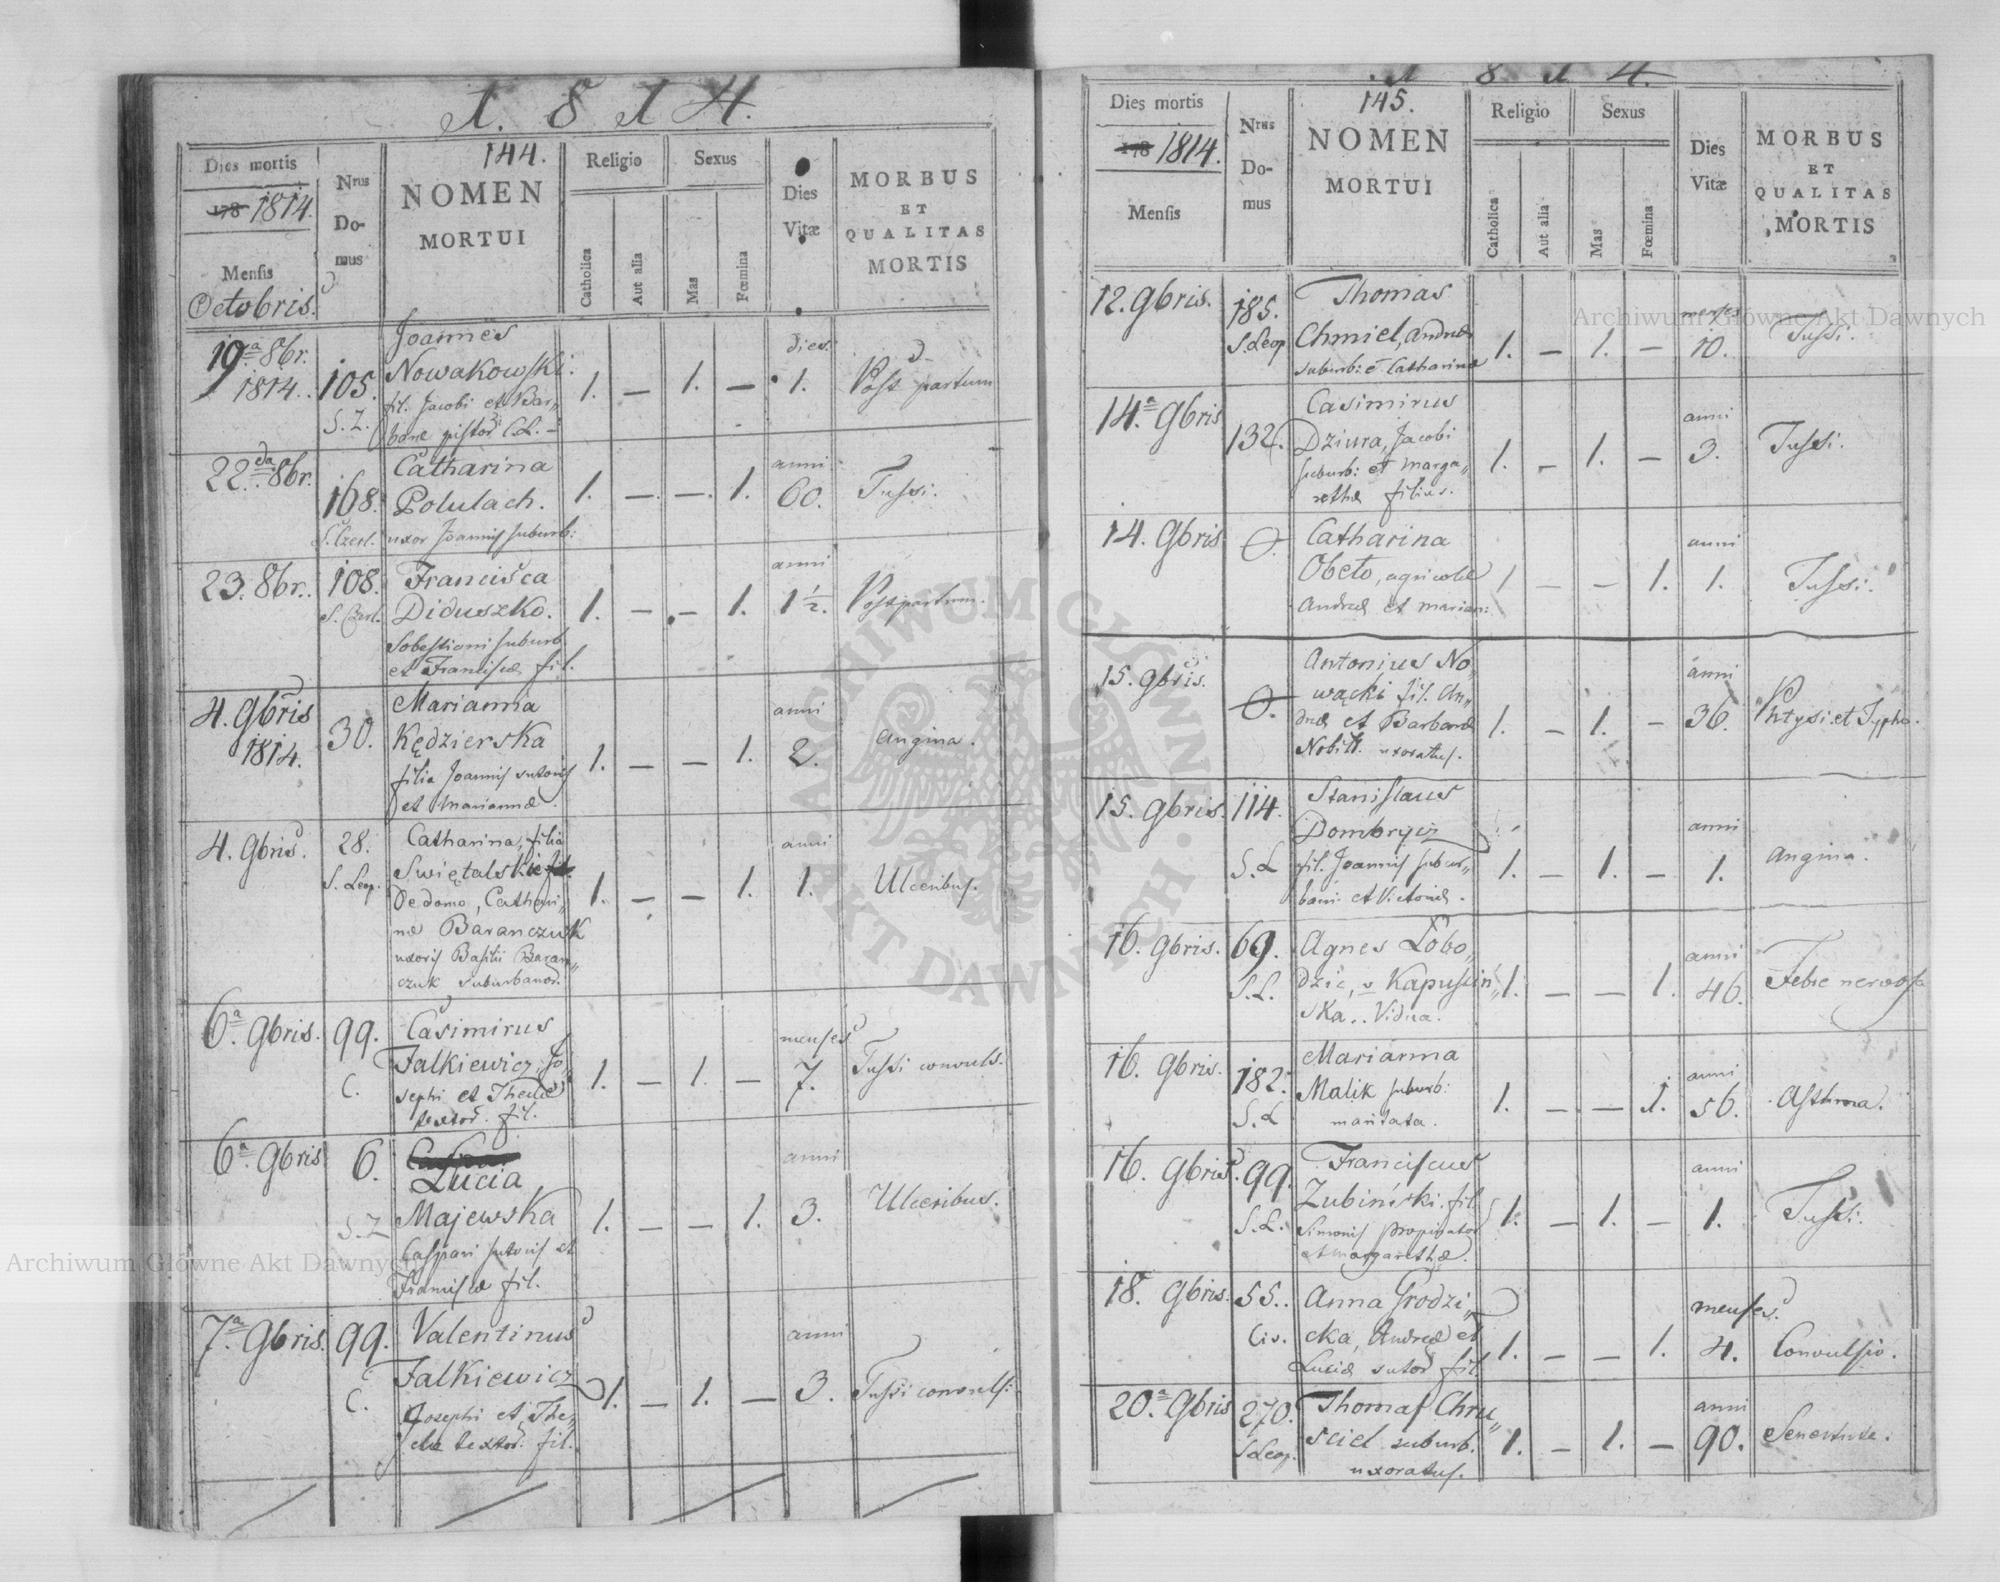 1. 8 1 4.
Dies mortis
178 1814.
Mensis
Octobris.
Nrus
Do-
mus
144.
NOMEN
MORTUI
Religio
Catholica
Aut alia
Sexus
Mas
Fœmina
Dies
Vitæ
MORBUS
ET
QUALITAS
MORTIS
19.ª 8br.
1814.
105.
S. Z.
Joannes
Nowakowski.
fil. Jacobi et Bar„
barae pistor: C.L.
1. — 1. —
dies.
1.
Post partum
22.da 8br.
168.
S. Czerl.
Catharina
Polulach.
uxor Joannis suburb:
1. — — 1.
anni
60.
Tussi.
23. 8br.
108.
S. Czerl.
Francisca
Diduszko.
Sobestiani suburb.
et Franciscæ fil.
1. — — 1.
anni
1 1/2.
Post partum.
4. 9bris
1814.
30.
Marianna
Kędzierska
filia Joannis sutoris
et Mariannæ.
1. — — 1.
anni
2.
Angina.
4. 9bris.
28.
S. Leop.
Catharina, filia
Swiętalskie
De domo, Cathari„
næ Baranczuk
uxoris Basilii Baran„
czuk suburbanor.
1. — — 1.
anni
1.
Ulceribus.
6.ª 9bris.
99.
C.
Casimirus
Falkiewicz, Jo„
sephi et Theclæ
textor. fil.
1. — 1. —
menses
7.
Tussi convuls.
6.ª 9bris
6.
S. Z
Lucia
Majewska
Caspari sutoris et
Franciscæ fil.
1. — — 1.
anni
3.
Ulceribus.
7.ª 9bris.
99.
C.
Valentinus
Falkiewicz
Josephi et The„
clæ textor. fil.
1. — 1. —
anni
3.
Tussi convuls:
1 8 1 4.
Dies mortis
178 1814.
Mensis
Nrus
Do-
mus
145.
NOMEN
MORTUI
Religio
Catholica
Aut alia
Sexus
Mas
Fœmina
Dies
Vitæ
MORBUS
ET
QUALITAS
MORTIS
12. 9bris.
185.
S. Leop
Thomas
Chmiel, Andreæ
suburb: et Catharinæ
1. — 1. —
menses
10.
Tussi.
14.ª 9bris
132.
Casimirus
Dziura, Jacobi
suburb: et Marga„
rethæ filius.
1. — 1. —
anni
3.
Tussi.
14. 9bris
0.
Catharina
Obeto, agricolæ
Andreæ et Marian:
1 — — 1.
anni
1.
Tussi.
15. 9bris.
0.
Antonius No„
wącki fil. An„
dreæ et Barbaræ
Nobill. uxoratus.
1. — 1. —
anni
36.
Phtysi et Typho.
15. 9bris.
114.
S. L
Stanislaus
Dombrycz
fil. Joannis subur„
bani et Victoriæ.
1. — 1. —
anni
1.
Angina.
16. 9bris.
69.
S. L.
Agnes Łobo„
dzic, v Kapuscin„
ska.. Vidua.
1. — — 1.
anni
46.
Febre nervosa
16. 9bris.
182.
S. L
Marianna
Malik suburb:
maritata.
1. — — 1.
anni
56.
Asthma.
16. 9bris.
99.
S. L.
Franciscus
Zubiński fil.
Simonis propinator
et Margarethæ.
1. — 1. —
anni
1.
Tussi.
18. 9bris.
55.
Civ.
Anna Grodzi„
cka, Andreæ et
Luciæ sutor fil.
1. — — 1.
menses.
4.
Convulsio.
20.ª 9bris
270.
S Leop.
Thomas Chru„
sciel suburb.
uxoratus.
1. — 1. —
anni
90.
Senectute.
Archiwum Główne Akt Dawnych
Archiwum Główne Akt Dawnych
ARCHIWUM GŁÓWNE AKT DAWNYCH